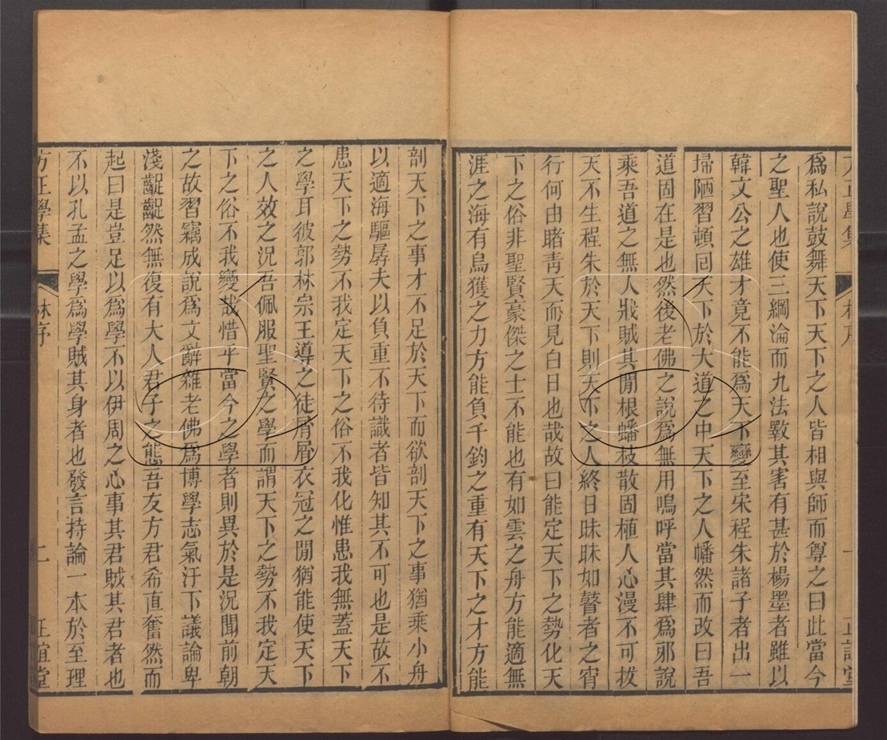 爲私說鼓舞天下天下之人皆相與師而尊之曰此當今
之聖人也使三綱淪而九法斁其害有甚於楊墨者雖以
韓文公之雄才竟不能爲天下變至宋程朱諸子者出一
埽陋習頓囘天下於大道之中天下之人幡然而改曰吾
道固在是也然後老佛之說爲無用嗚呼當其肆爲邪說
乘吾道之無人戕賊其閒根蟠枝散固植人心漫不可拔
天不生程朱於天下則天下之人終日昧昧如瞽者之宵
行何由睹青天而見白日也哉故曰能定天下之勢化天
下之俗非聖賢豪傑之士不能也有如雲之舟方能適無
涯之海有烏獲之力方能負千鈞之重有天下之才方能
剖天下之事才不足於天下而欲剖天下之事猶乘小舟
以適海驅孱夫以負重不待識者皆知其不可也是故不
患天下之勢不我定天下之俗不我化惟患我無蓋天下
之學耳彼郭林宗王導之徒屑屑衣冠之閒猶能使天下
之人效之況吾佩服聖賢之學而謂天下之勢不我定天
下之俗不我變哉惜乎當今之學者則異於是況聞前朝
之故習竊成說爲文辭雜老佛爲博學志氣汙下議論卑
淺齪齪然無復有大人君子之態吾友方君希直奮然而
起曰是豈足以爲學不以伊周之心事其君賊其君者也
不以孔孟之學爲學賊其身者也發言持論一本於至理
方正學集 林序 二 正誼堂